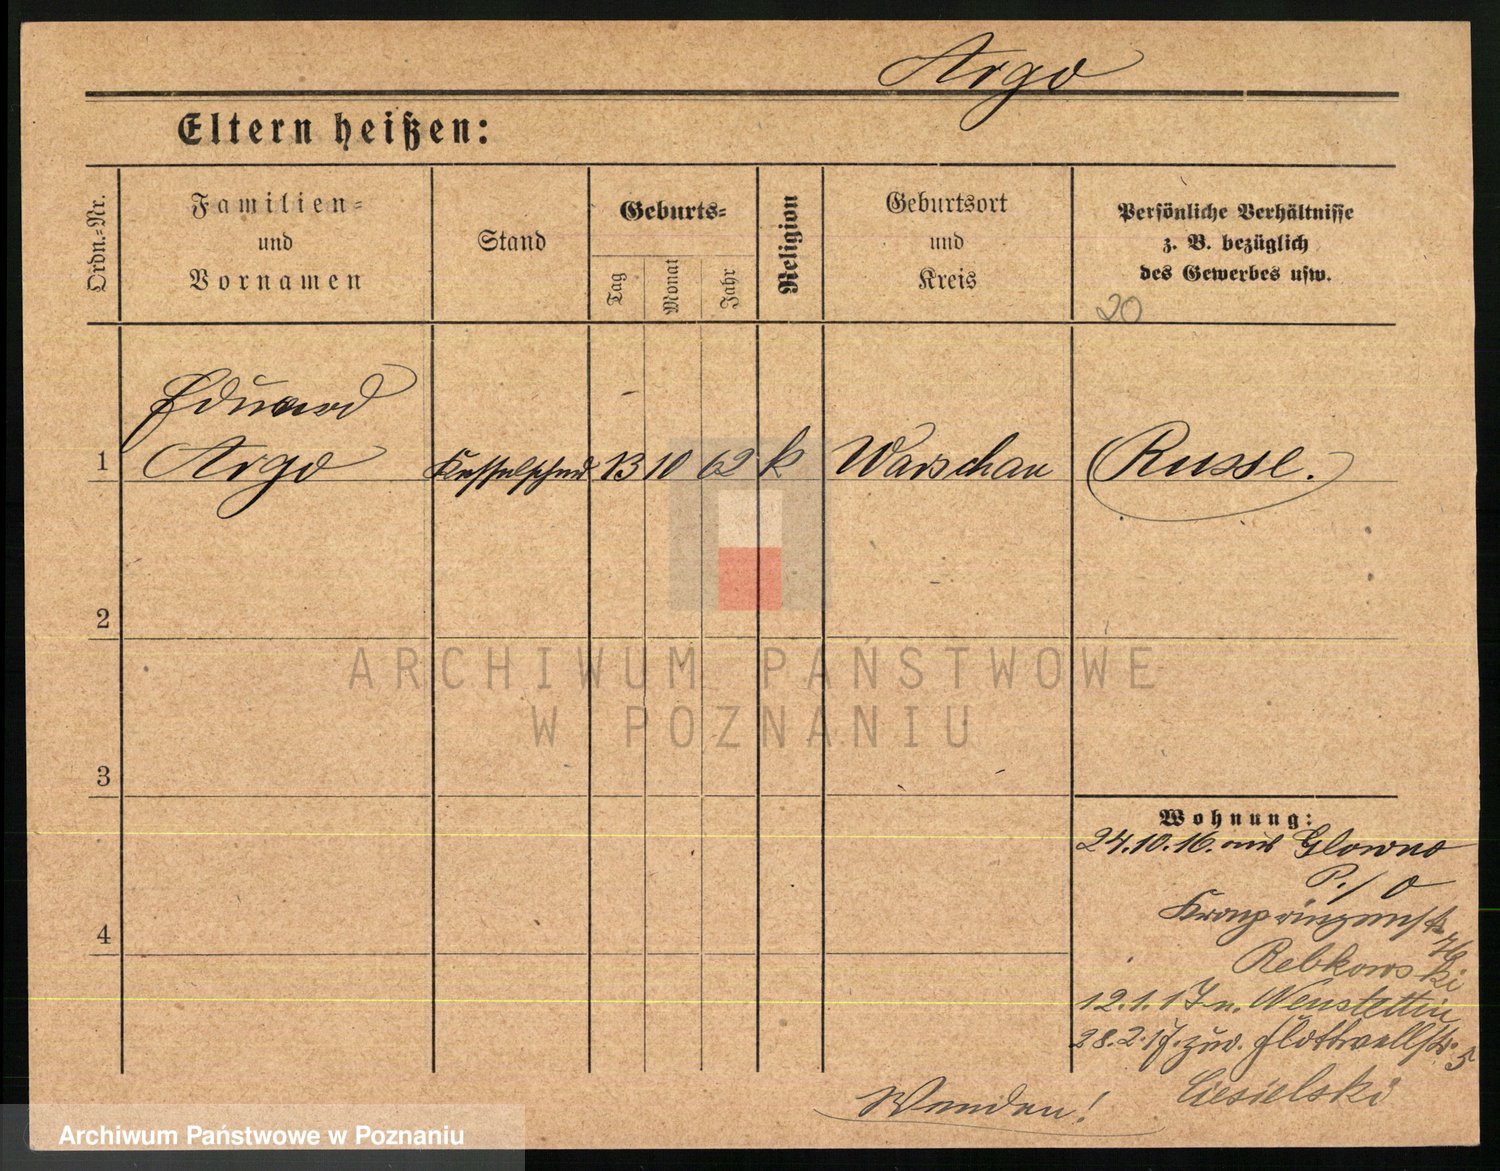 Argo
Eltern heißen:
Ordn.-Nr.
Familien-
und
Vornamen
Stand
Geburts-
Tag
Monat
Jahr
Religion
Geburtsort
und
Kreis
Persönliche Verhältnisse
z. B. bezüglich
des Gewerbes usw.
20
Eduard
1 Argo Kesselschmied 13 10 62 k Warschau Russe.
2
ARCHIWUM PAŃSTWOWE
W POZNANIU
3
Wohnung:
24.10.16. aus Glowno
P./O
4
Kronprinzenstr.
Rebkowski
12.1.17 n. Neustettin
28.2.17. zur. Flottwellstr. 5
Ciesielski
Wenden!
Archiwum Państwowe w Poznaniu